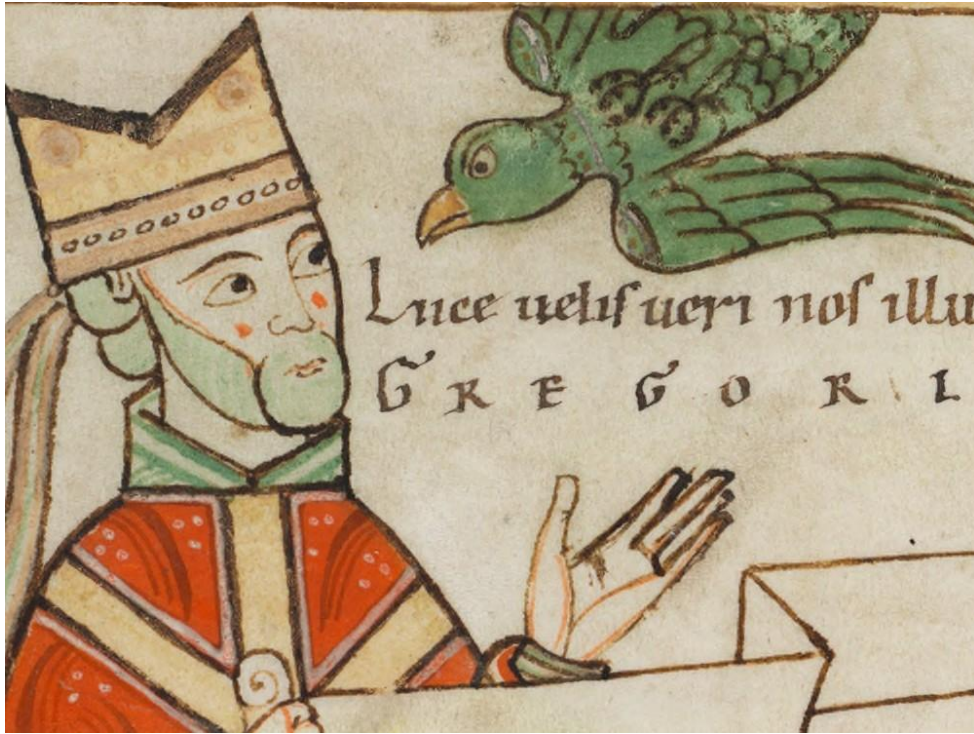 Luce uelis ueri nos illu
GREGORI